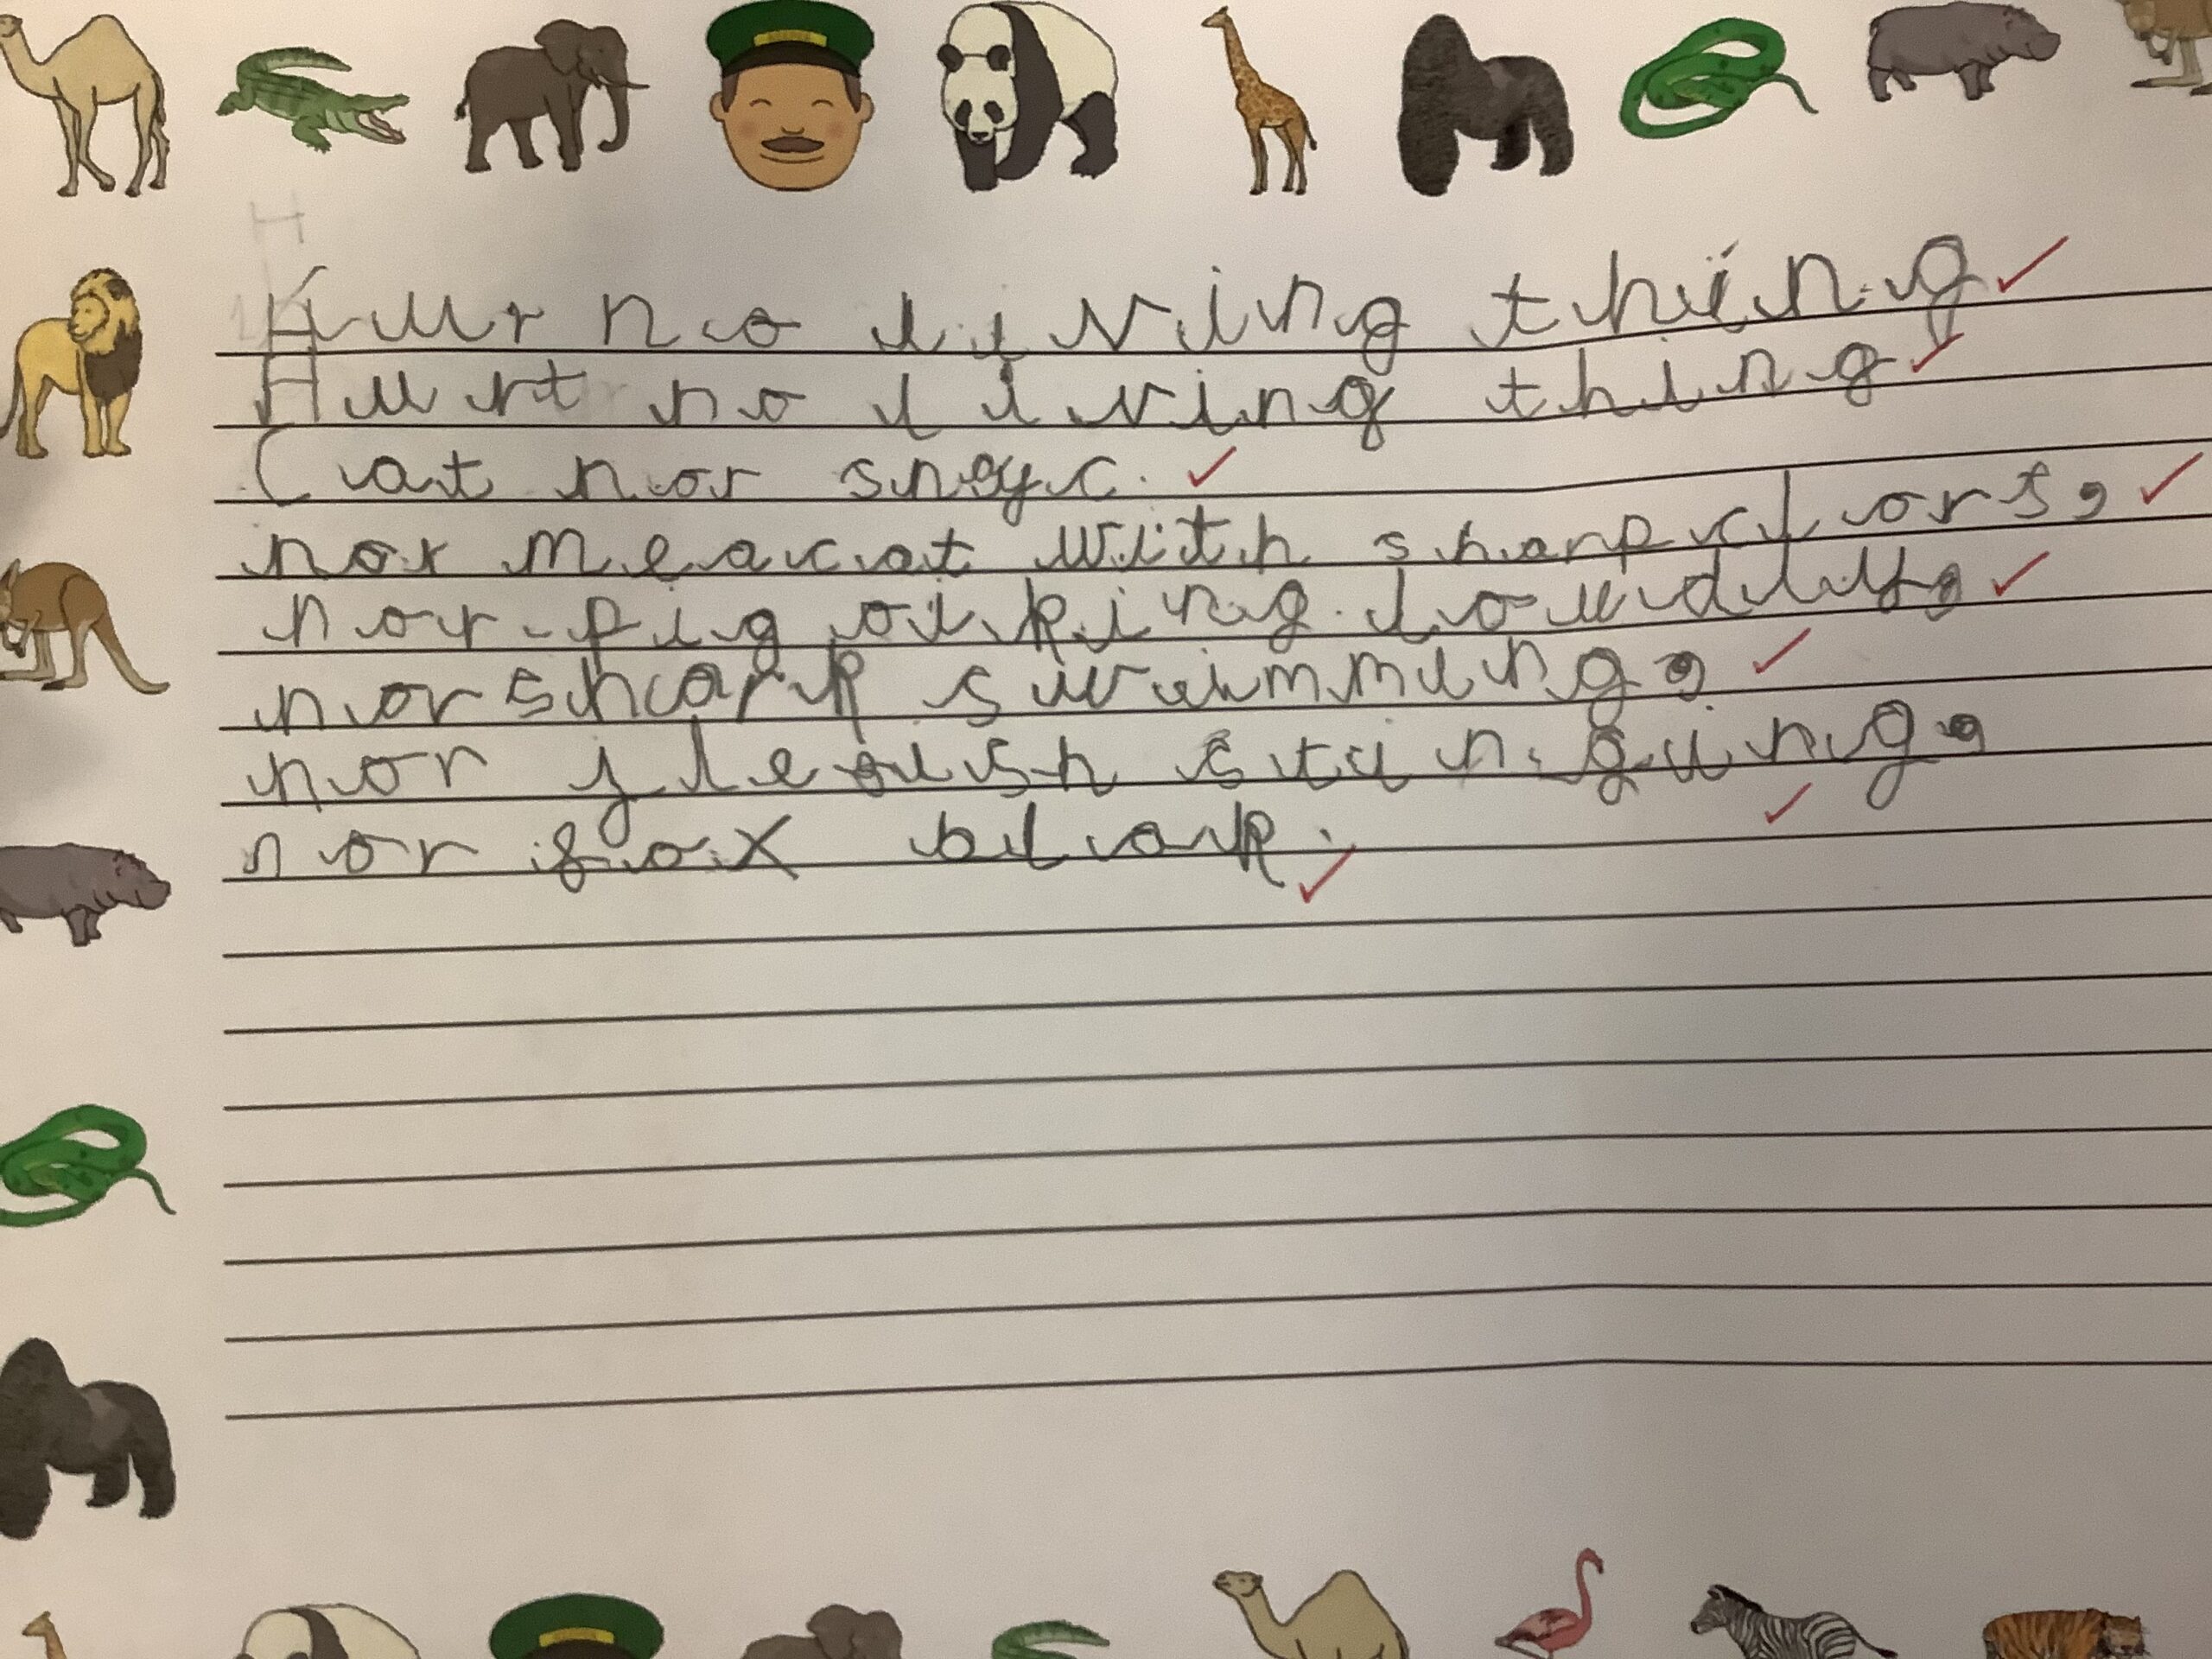 H
Hur no living thing
Hurt no living thing
Cat nor snayc.
nor meacat with sharp clors,
nor pig oiking loudly,
nor shark swimming,
nor jleoish stinging,
nor fox blak.